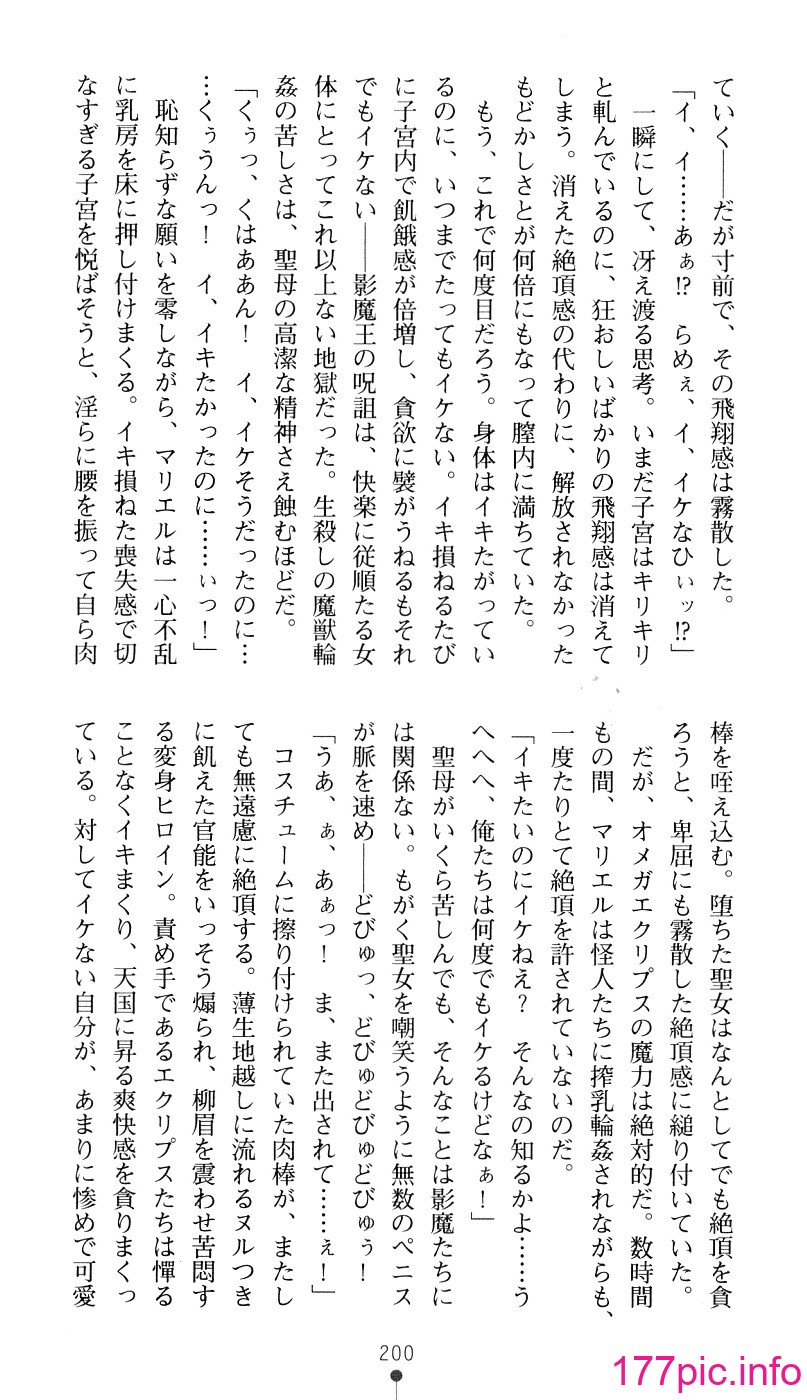 ていく――だが寸前で、その飛翔感は霧散した。
「イ、イ……あぁ!? らめぇ、イ、イケなひぃッ!?」
一瞬にして、冴え渡る思考。いまだ子宮はキリキリ
と軋んでいるのに、狂おしいばかりの飛翔感は消えて
しまう。消えた絶頂感の代わりに、解放されなかった
もどかしさとが何倍にもなって膣内に満ちていた。
もう、これで何度目だろう。身体はイキたがってい
るのに、いつまでたってもイケない。イキ損ねるたび
に子宮内で飢餓感が倍増し、貪欲に襞がうねるもそれ
でもイケない――影魔王の呪詛は、快楽に従順たる女
体にとってこれ以上ない地獄だった。生殺しの魔獣輪
姦の苦しさは、聖母の高潔な精神さえ蝕むほどだ。
「くぅっ、くはああん！ イ、イケそうだったのに…
…くぅうんっ！ イ、イキたかったのに……ぃっ！」
恥知らずな願いを零しながら、マリエルは一心不乱
に乳房を床に押し付けまくる。イキ損ねた喪失感で切
なすぎる子宮を悦ばそうと、淫らに腰を振って自ら肉
棒を咥え込む。堕ちた聖女はなんとしてでも絶頂を貪
ろうと、卑屈にも霧散した絶頂感に縋り付いていた。
だが、オメガエクリプスの魔力は絶対的だ。数時間
もの間、マリエルは怪人たちに搾乳輪姦されながらも、
一度たりとて絶頂を許されていないのだ。
「イキたいのにイケねえ？ そんなの知るかよ……う
へへへ、俺たちは何度でもイケるけどなぁ！」
聖母がいくら苦しんでも、そんなことは影魔たちに
は関係ない。もがく聖女を嘲笑うように無数のペニス
が脈を速め――どびゅっ、どびゅどびゅどびゅぅ！
「うあ、ぁ、あぁっ！ ま、また出されて……ぇ！」
コスチュームに擦り付けられていた肉棒が、またし
ても無遠慮に絶頂する。薄生地越しに流れるヌルつき
に飢えた官能をいっそう煽られ、柳眉を震わせ苦悶す
る変身ヒロイン。責め手であるエクリプスたちは憚る
ことなくイキまくり、天国に昇る爽快感を貪りまくっ
ている。対してイケない自分が、あまりに惨めで可愛
200
177pic.info